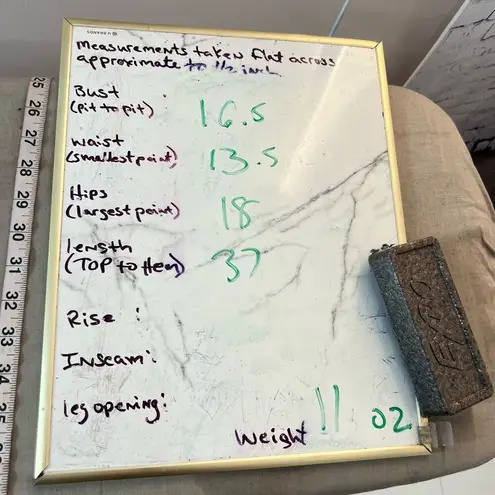 U BRANDS
Measurements taken flat across
approximate to 1/2 inch
Bust
(pit to pit) 16.5
Waist
(smallest point) 13.5
Hips
(largest point) 18
length
(TOP to Hem) 37
Rise :
Inseam:
leg opening:
Weight 11 oz
25
26
27
28
29
30
31
32
33
34